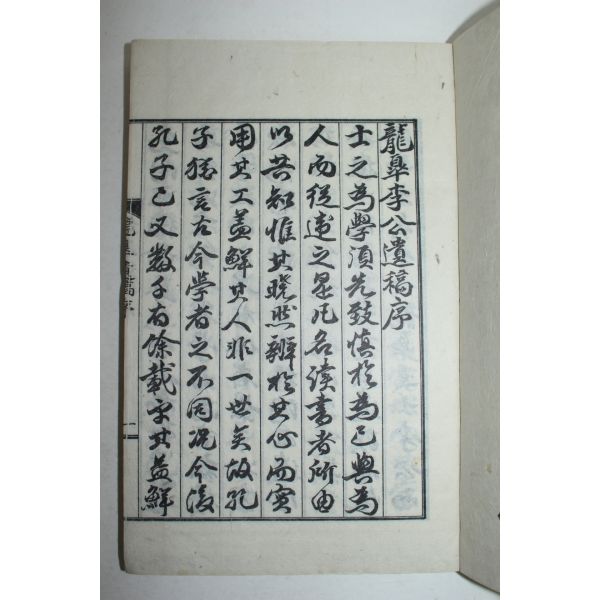 龍皐李公遺稿序
士之為學須先致慎於為已與為
人而從違之是凡名讀書者所由
以共知惟其曉然辨於其心而實
用其工盖鮮其人非一世矣故孔
子猶言古今學者之不同况今後
孔子已又數千有餘載乎其益鮮
龍皐遺稿序
一